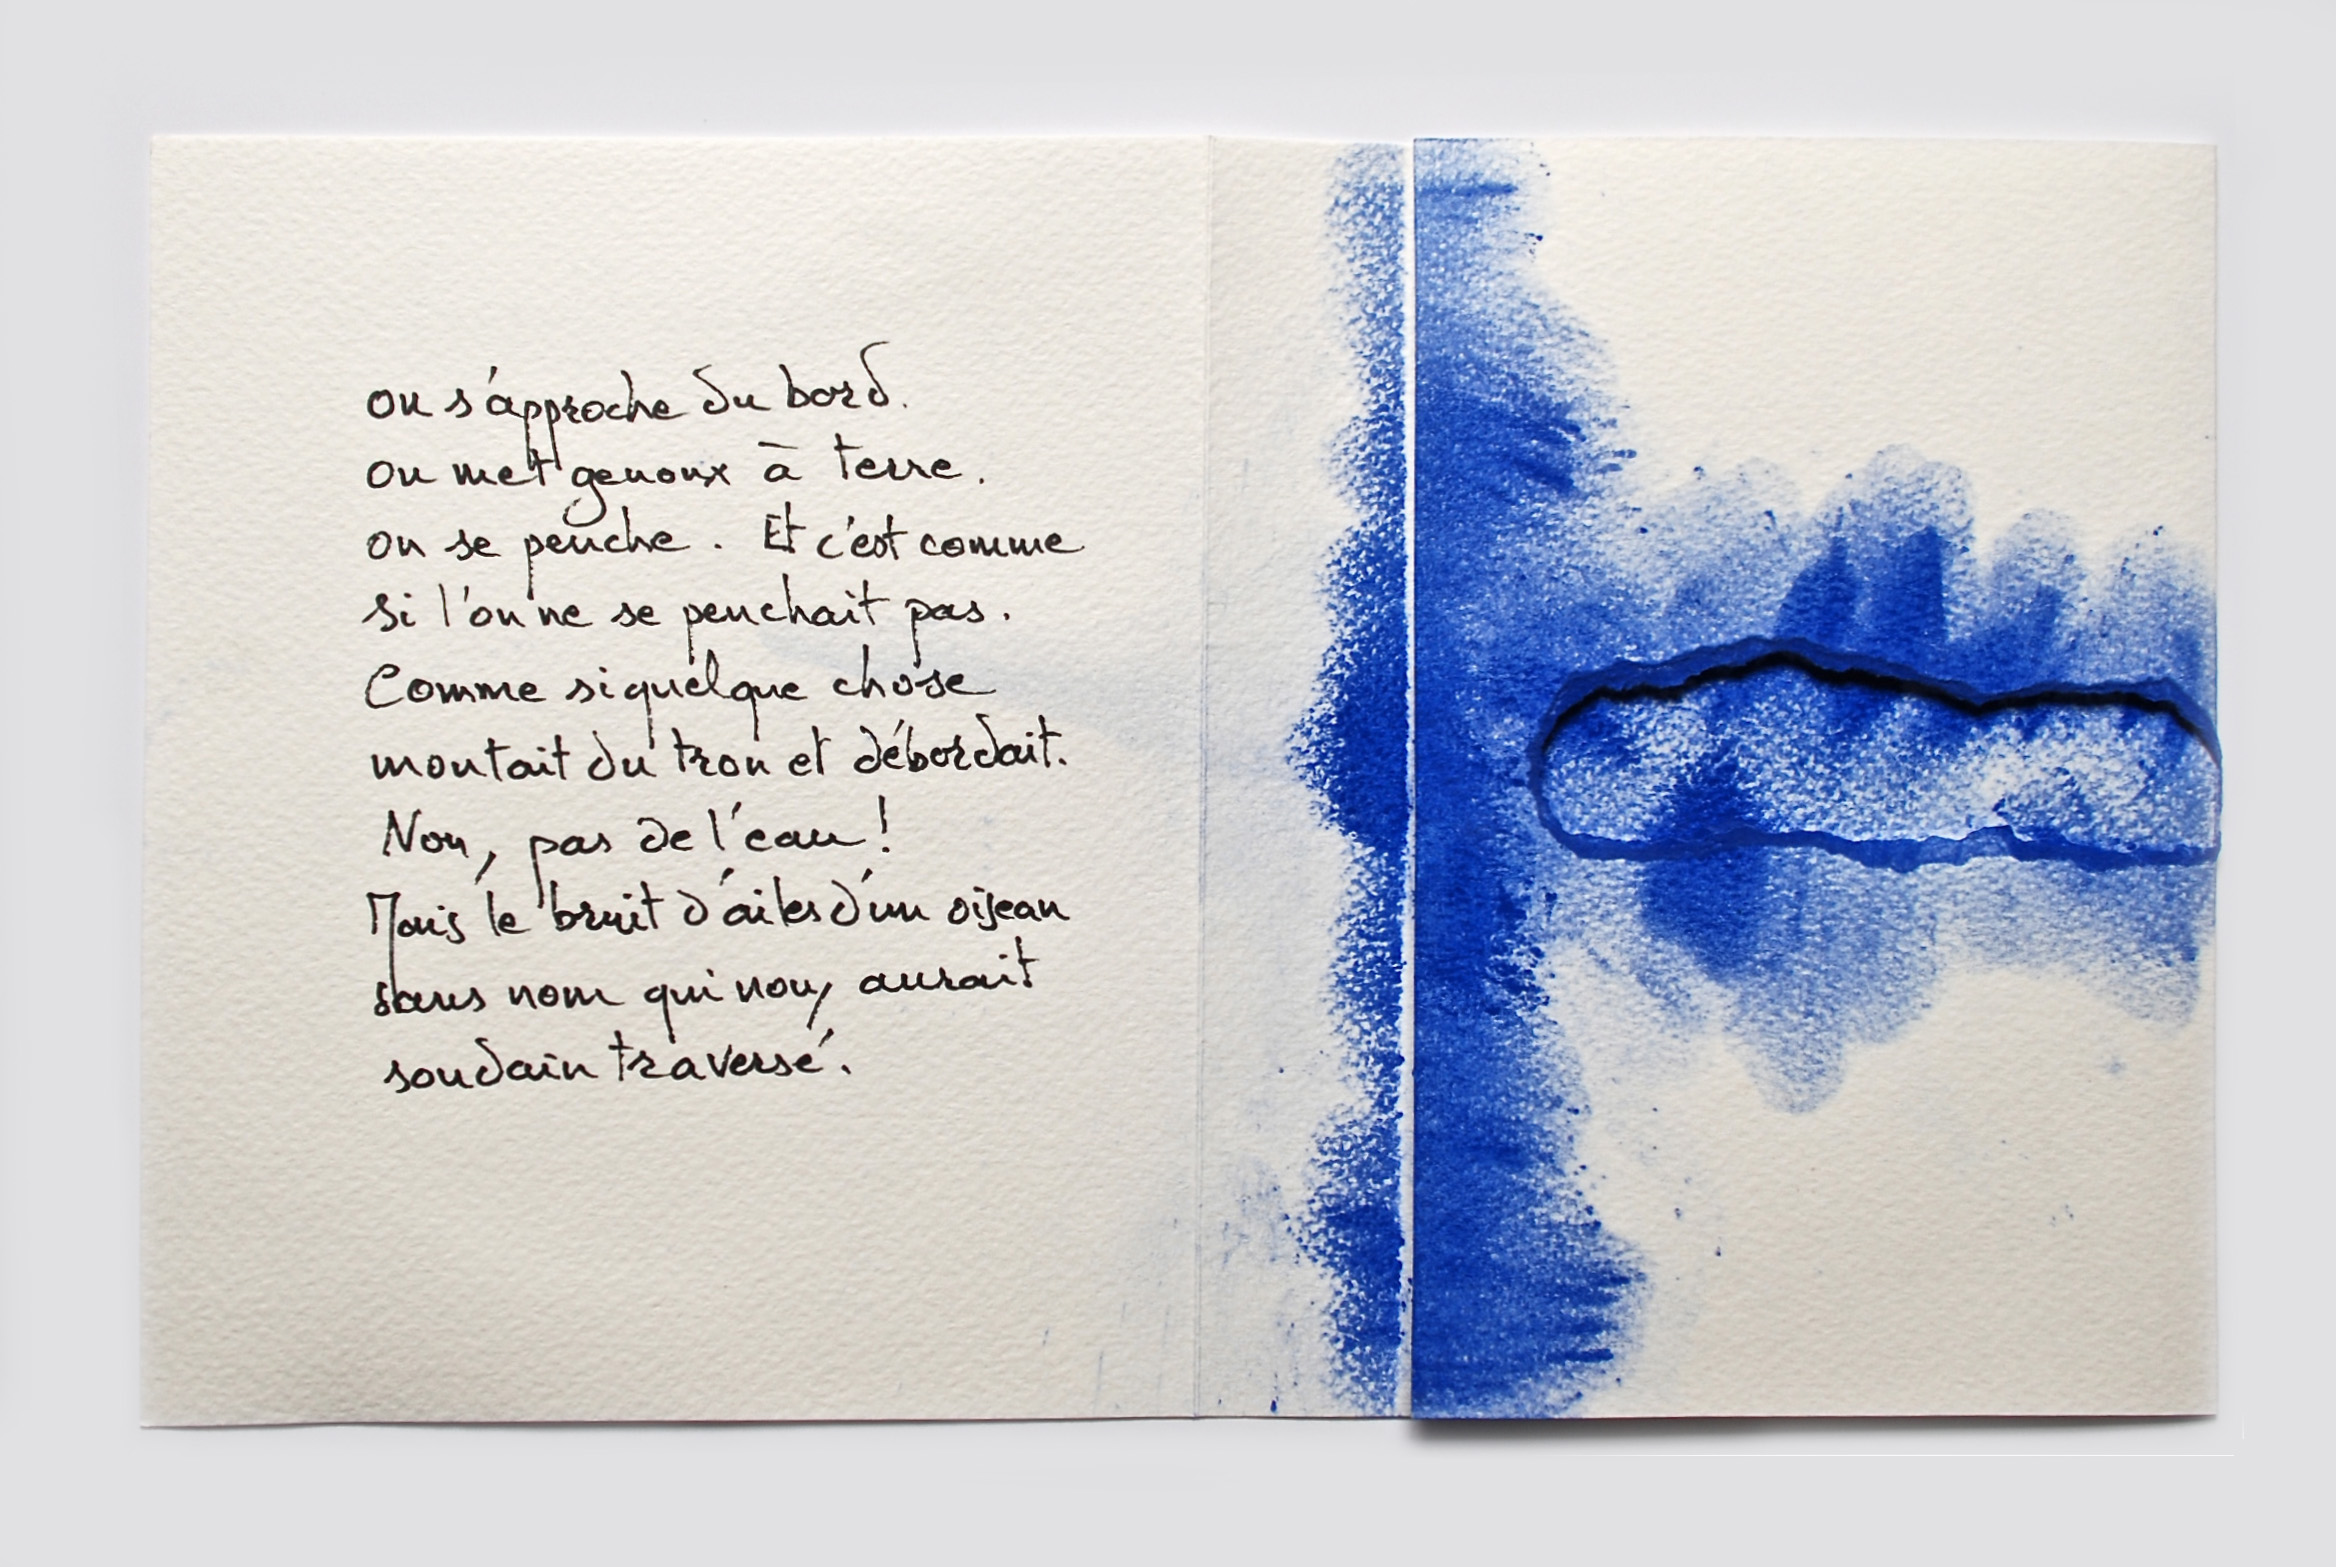 on s'approche du bord.
on met genoux à terre.
on se penche. Et c'est comme
si l'on ne se penchait pas.
Comme si quelque chose
montait du trou et débordait.
Non, pas de l'eau !
Mais le bruit d'ailes d'un oiseau
sans nom qui nous aurait
soudain traversé.